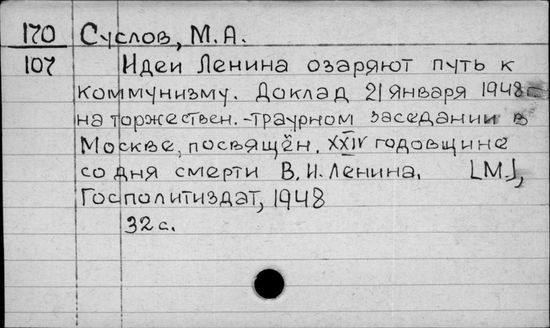 170 Суслов, М.А.
107 Идеи Ленина озаряют путь к
коммунизму. Доклад 21 января 1948г.
на торжествен.-траурном заседании в
Москве, посвящён. XXIV годовщине
со дня смерти В.И. Ленина. [М.],
Госполитиздат, 1948
32 с.